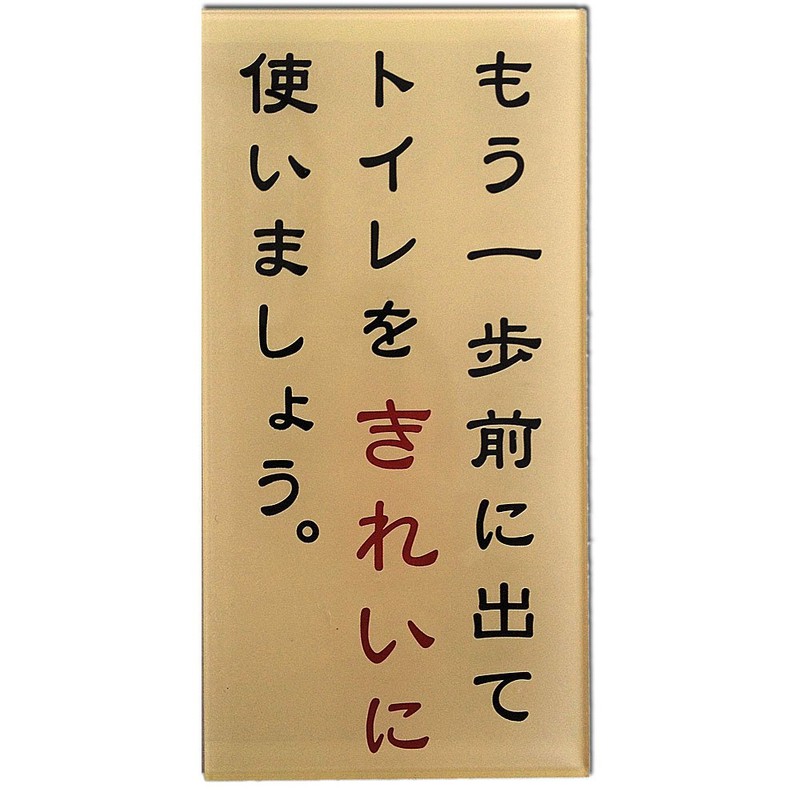 もう一歩前に出て
トイレをきれいに
使いましょう。